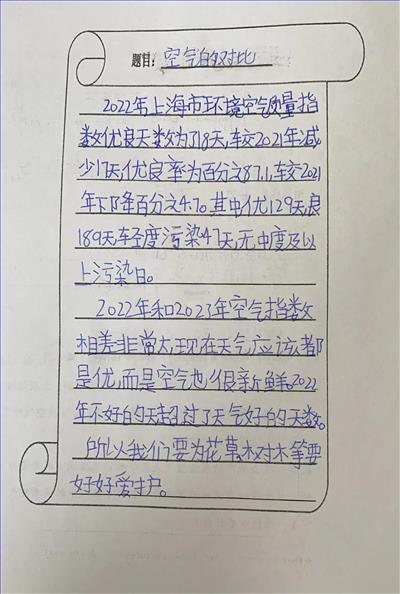 题目：空气的对比
2022年上海市环境空气质量指
数优良天数为318天，较2021年减
少17天，优良率为百分之87.1，较2021
年下降百分之4.7。其中优129天，良
189天，轻度污染47天，无中度及以
上污染日。
2022年和2023年空气指数
相差非常大，现在天气应该都
是优，而是空气也很新鲜。2022
年不好的天超过了天气好的天数。
所以我们要为花草树木等要
好好爱护。